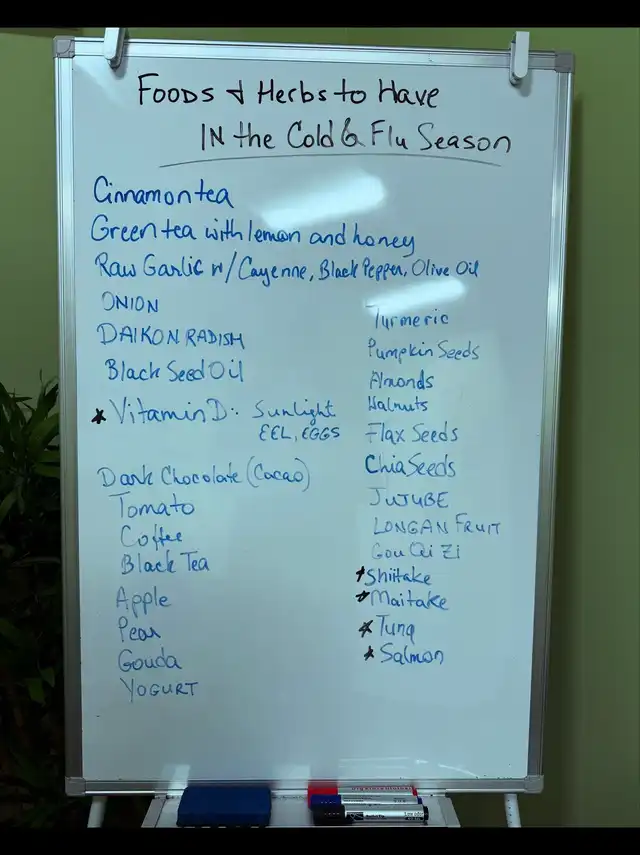 Foods & Herbs to Have
IN the Cold & Flu Season
Cinnamon tea
Green tea with lemon and honey
Raw Garlic w/ Cayenne, Black Pepper, Olive Oil
ONION
DAIKON RADISH
Black Seed Oil
* Vitamin D: Sunlight
EEL, EGGS
Dark Chocolate (Cacao)
Tomato
Coffee
Black Tea
Apple
Pear
Gouda
YOGURT
Turmeric
Pumpkin Seeds
Almonds
Walnuts
Flax Seeds
Chia Seeds
JUJUBE
LONGAN FRUIT
Gou Qi Zi
* Shiitake
* Maitake
* Tuna
* Salmon